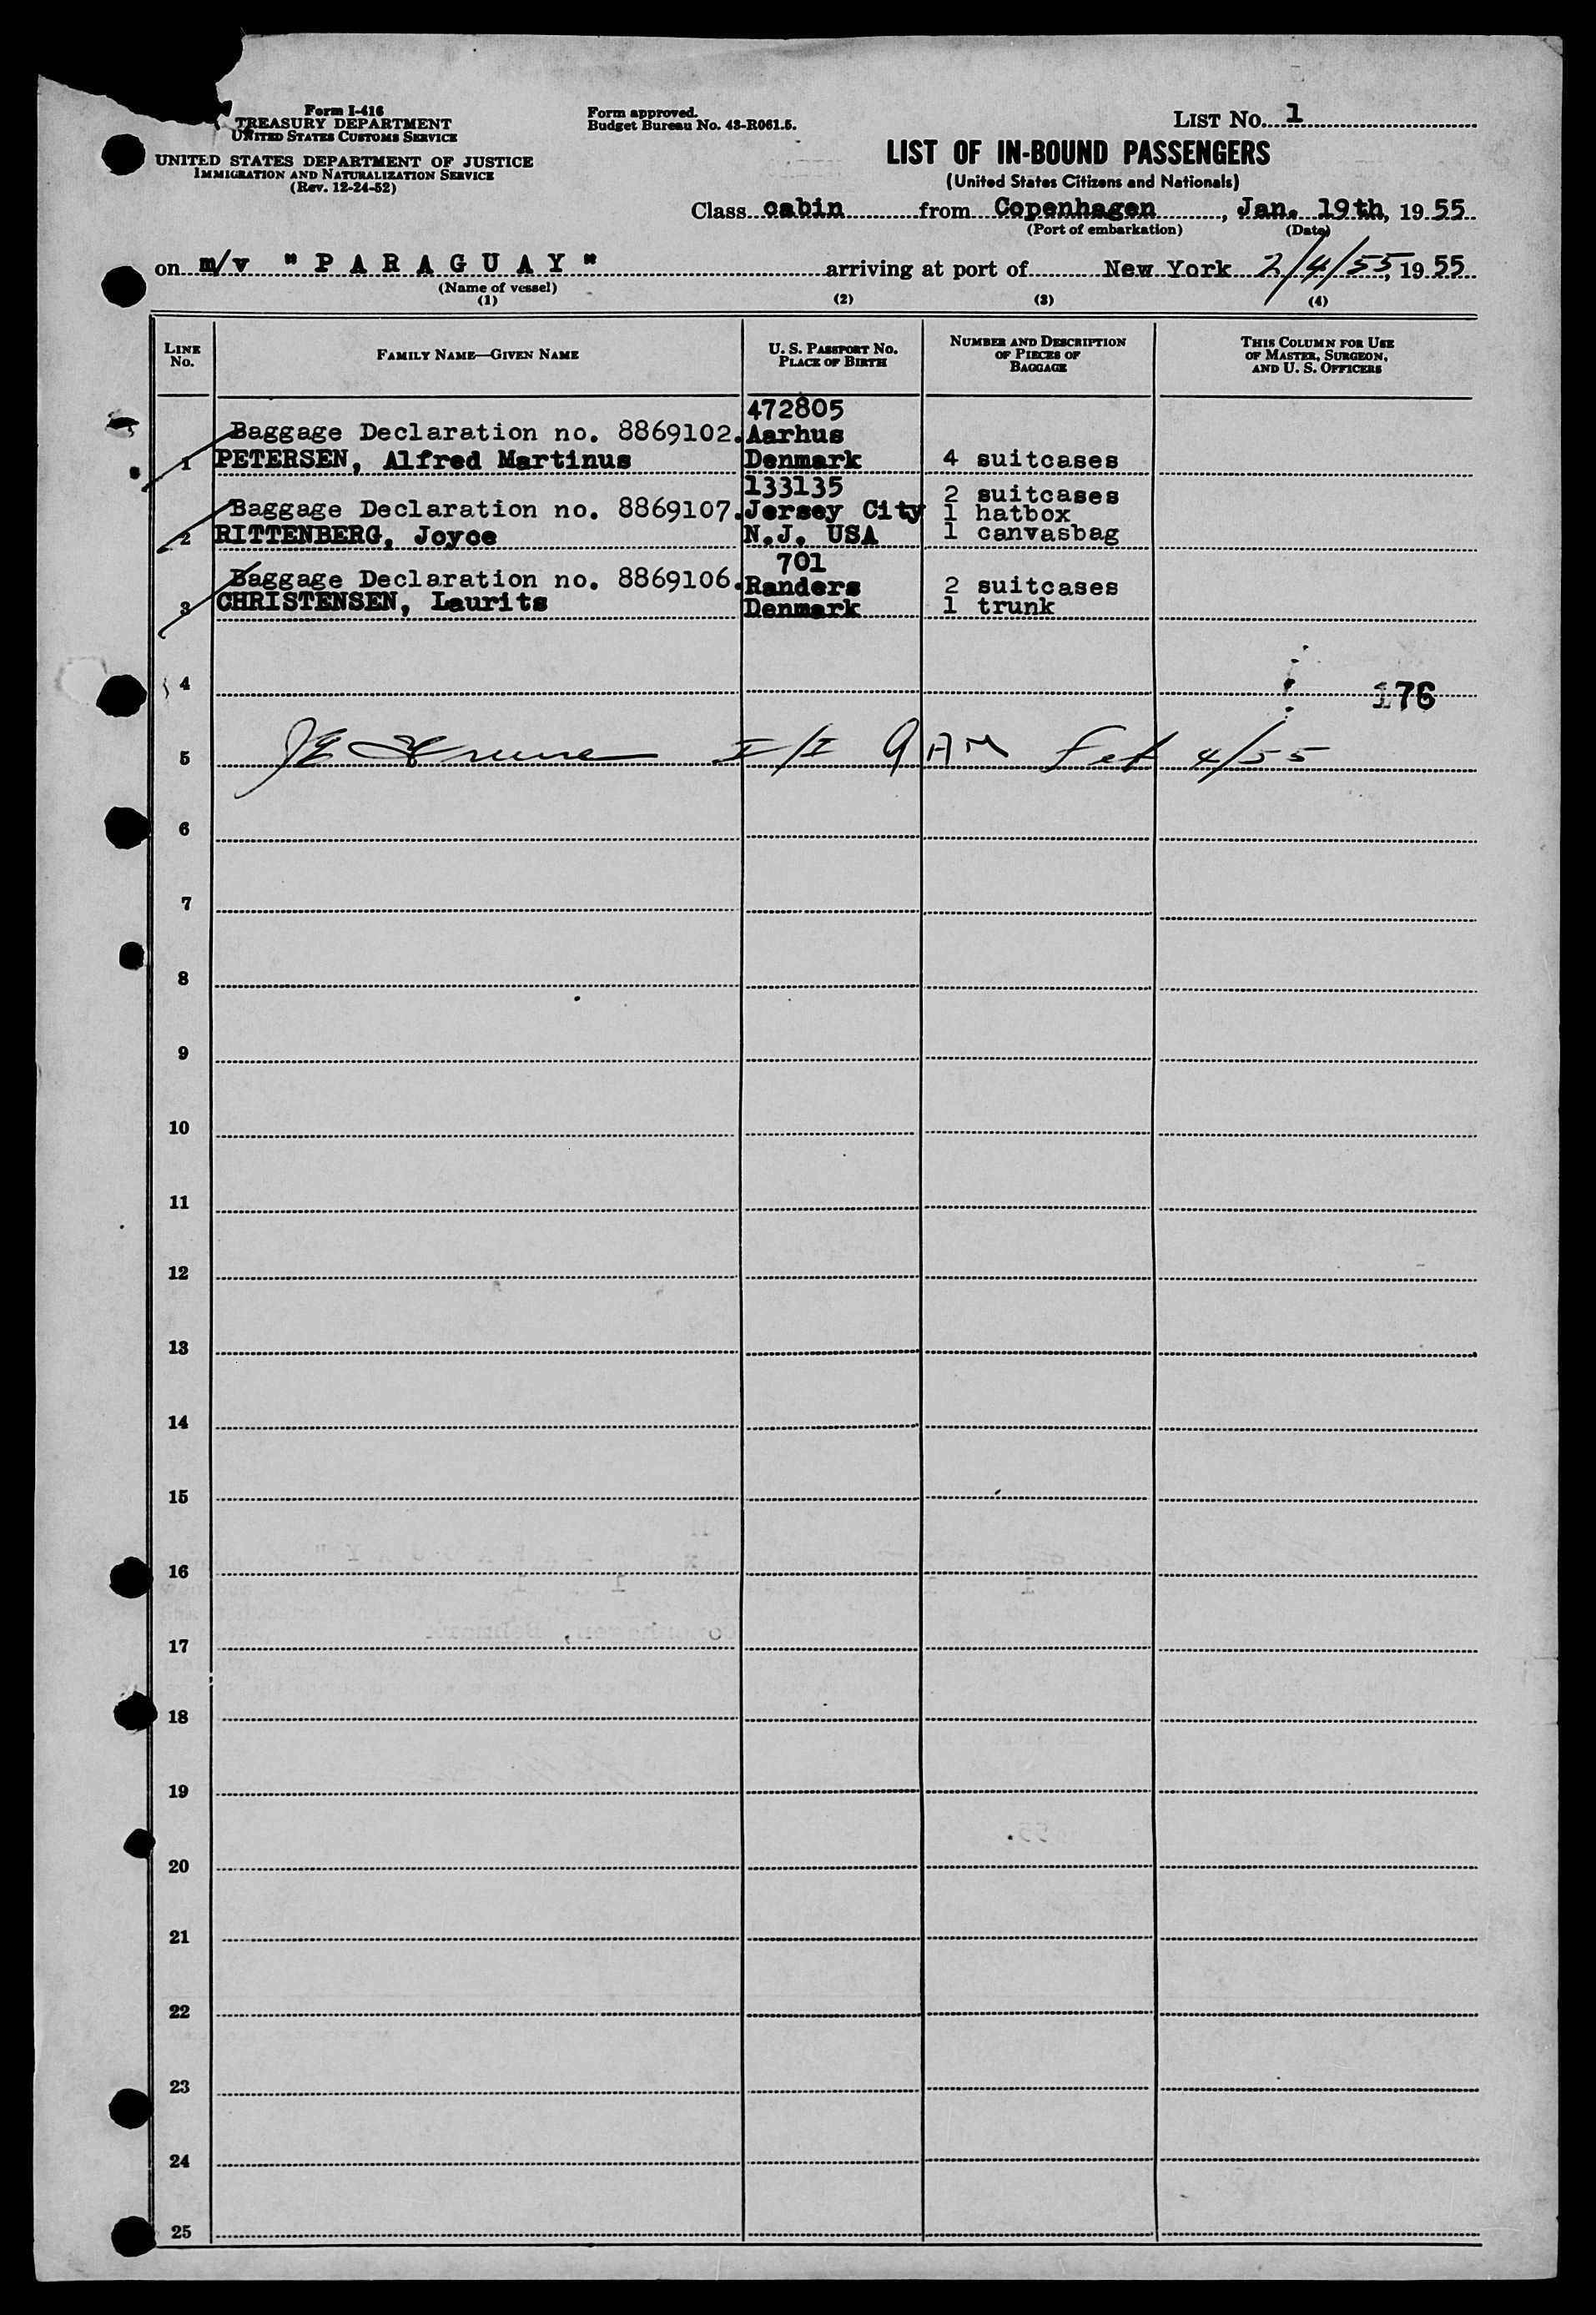 Form I-416
TREASURY DEPARTMENT
UNITED STATES CUSTOMS SERVICE
UNITED STATES DEPARTMENT OF JUSTICE
IMMIGRATION AND NATURALIZATION SERVICE
(Rev. 12-24-52)
Form approved.
Budget Bureau No. 43-R061.5.
LIST No. 1
LIST OF IN-BOUND PASSENGERS
(United States Citizens and Nationals)
Class cabin from Copenhagen, Jan. 19th, 1955
(Port of embarkation) (Date)
on m/v "PARAGUAY" arriving at port of New York 2/4/55, 1955
(Name of vessel)
(1) (2) (3) (4)
LINE No. FAMILY NAME—GIVEN NAME U. S. PASSPORT No. PLACE OF BIRTH NUMBER AND DESCRIPTION OF PIECES OF BAGGAGE THIS COLUMN FOR USE OF MASTER, SURGEON, AND U. S. OFFICERS
472805
Baggage Declaration no. 8869102. Aarhus
1 PETERSEN, Alfred Martinus Denmark 4 suitcases
133135 2 suitcases
Baggage Declaration no. 8869107. Jersey City 1 hatbox
2 RITTENBERG, Joyce N.J. USA 1 canvasbag
701
Baggage Declaration no. 8869106. Randers 2 suitcases
3 CHRISTENSEN, Laurits Denmark 1 trunk
4 176
5 I/I 9 AM Feb 4/55
6
7
8
9
10
11
12
13
14
15
16
17
18
19
20
21
22
23
24
25